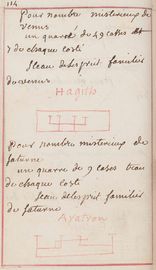 114
Pour nombre misterieux de
venus
un quarré de 49 cases
7 de chaque costé
Sceau desesprit familier
de venus
Hagith
Pour nombre misterieux de
saturne
un quarre de 9 cases
de chaque coste
Sceau delesprit familier
de saturne
Aratron